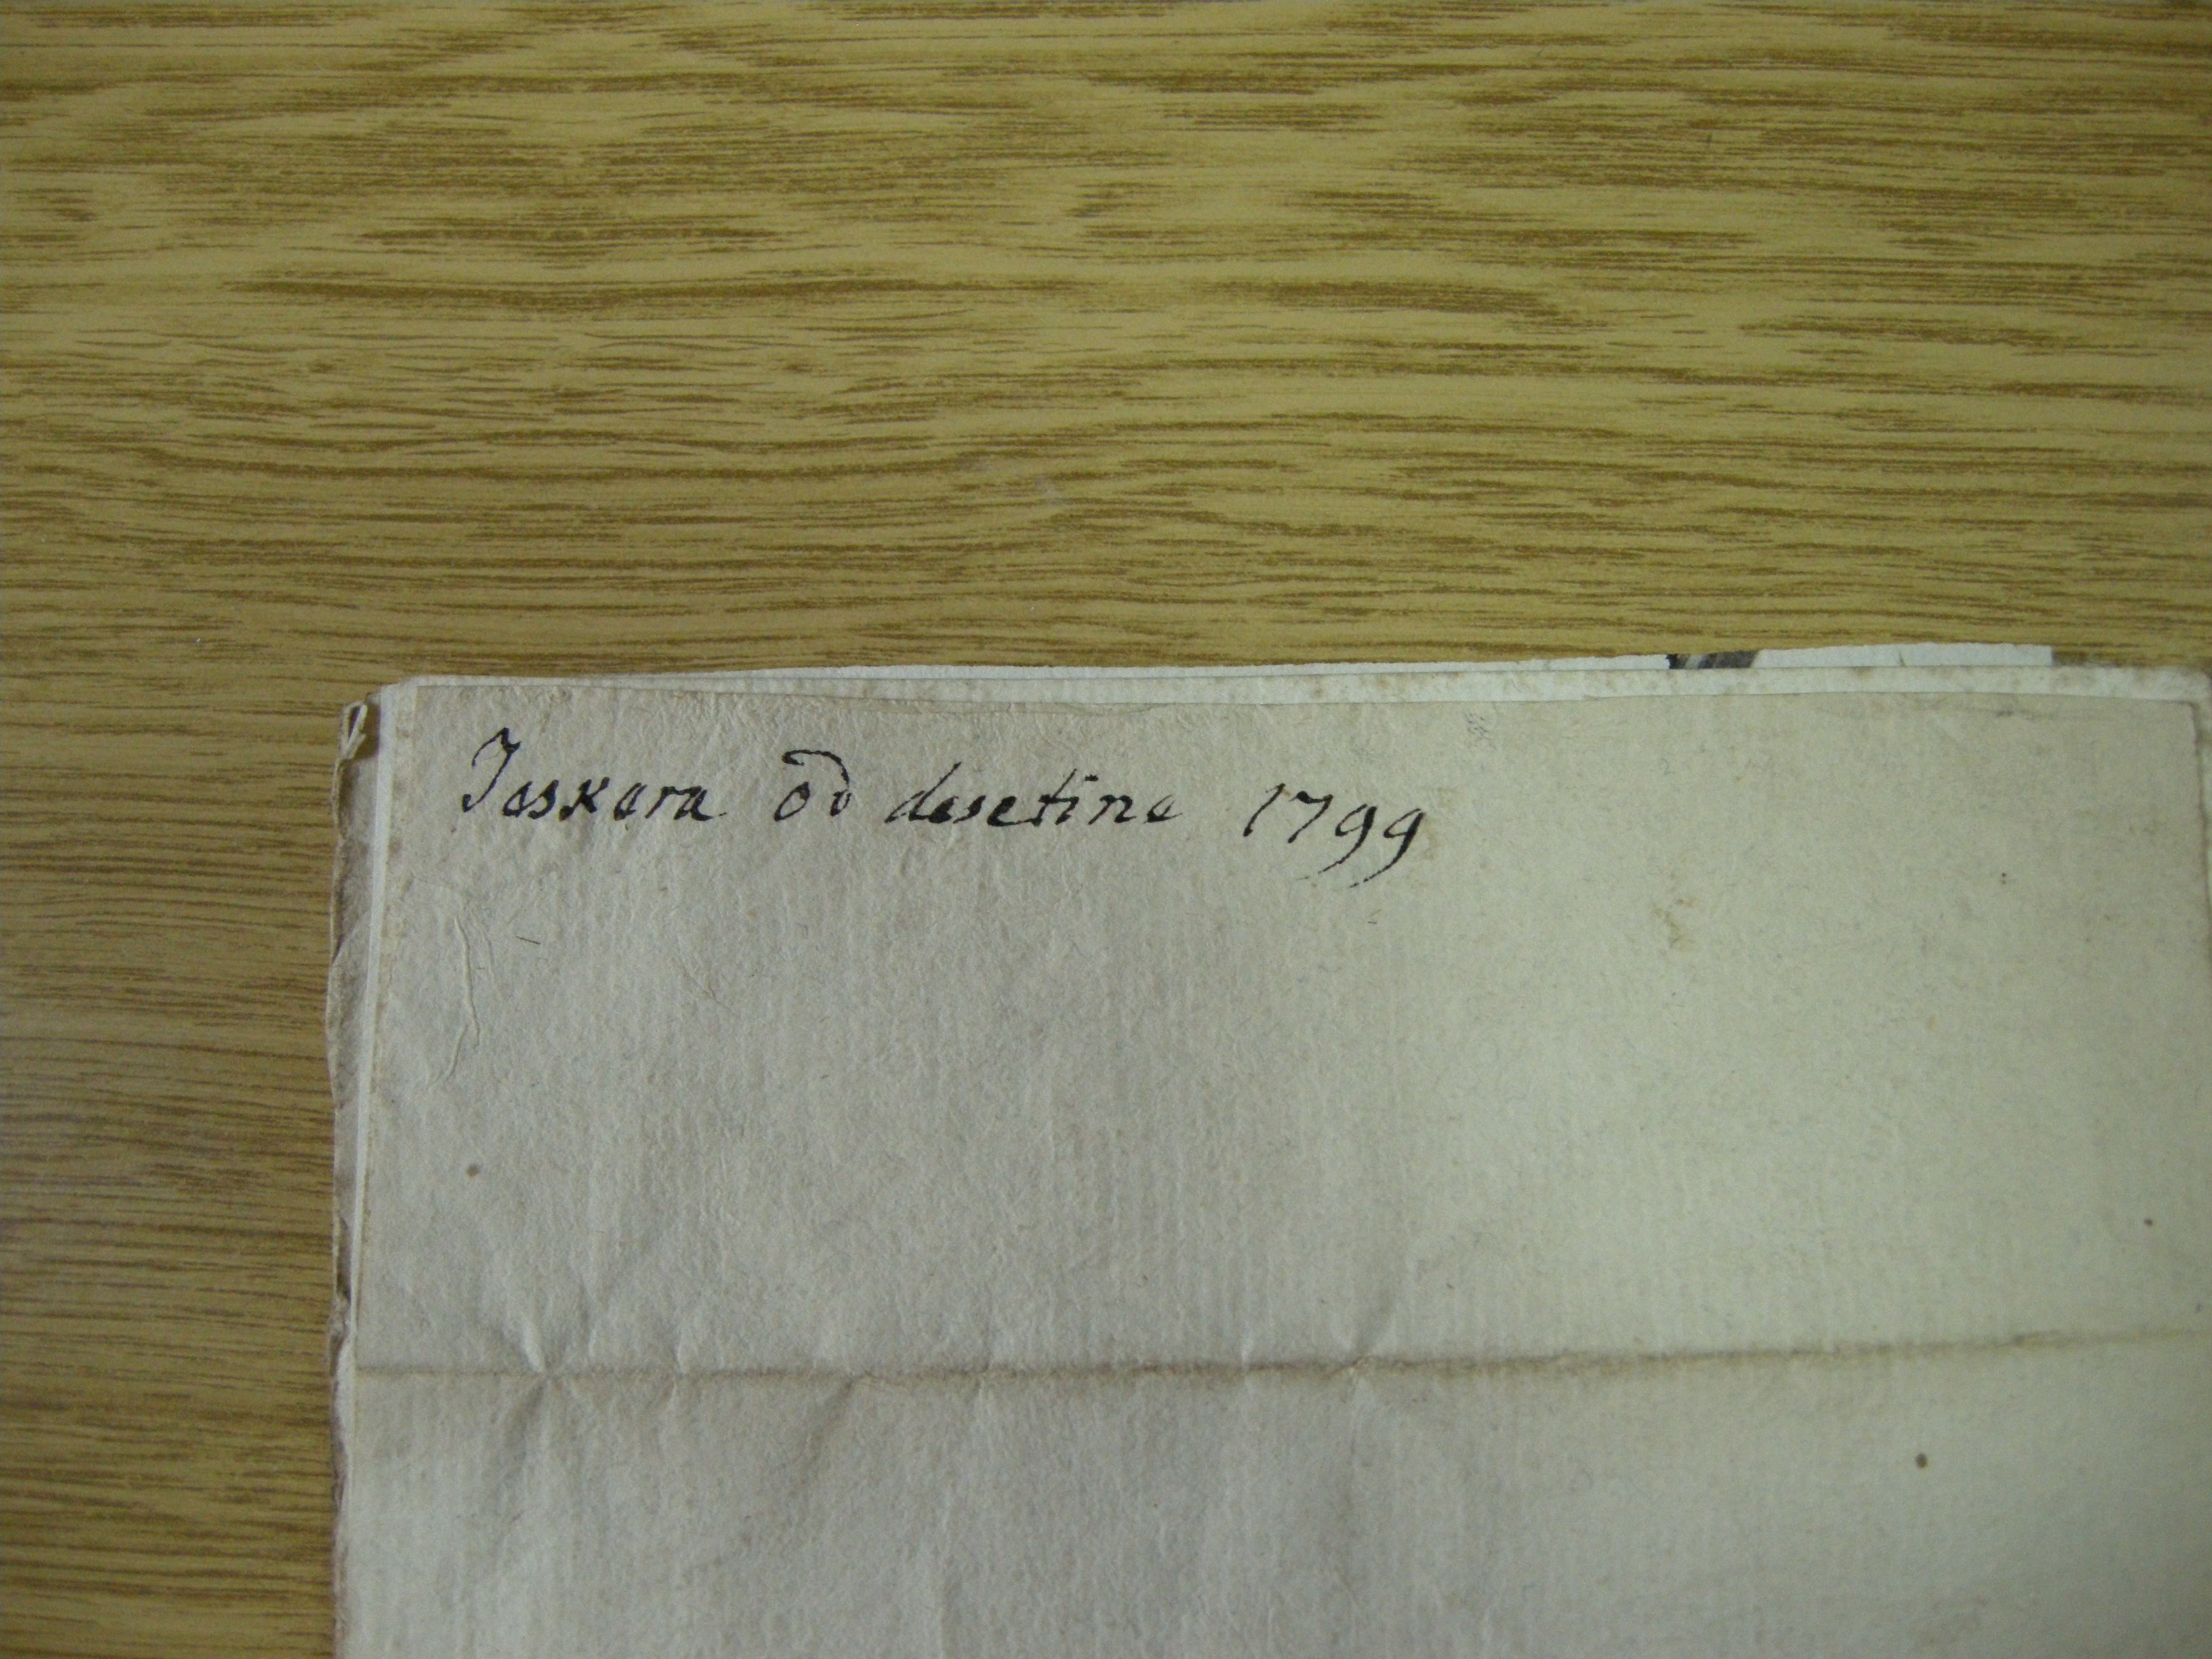 Teskera od desetine 1799